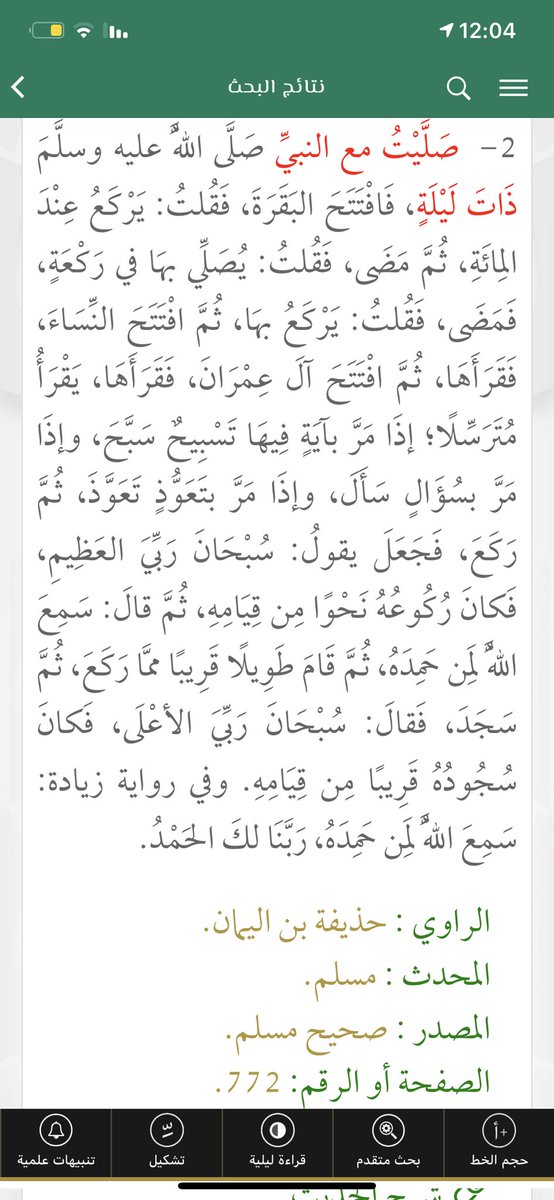 12:04
نتائج البحث
2- صَلَّيْتُ مع النبيِّ صَلَّى اللَّهُ عليه وسلَّمَ
ذَاتَ لَيْلَةٍ، فَافْتَتَحَ البَقَرَةَ، فَقُلتُ: يَرْكَعُ عِنْدَ
المِائَةِ، ثُمَّ مَضَى، فَقُلتُ: يُصَلِّي بهَا في رَكْعَةٍ،
فَمَضَى، فَقُلتُ: يَرْكَعُ بهَا، ثُمَّ افْتَتَحَ النِّسَاءَ،
فَقَرَأَهَا، ثُمَّ افْتَتَحَ آلَ عِمْرَانَ، فَقَرَأَهَا، يَقْرَأُ
مُتَرَسِّلًا؛ إذَا مَرَّ بآيَةٍ فِيهَا تَسْبِيحٌ سَبَّحَ، وإذَا
مَرَّ بسُؤَالٍ سَأَلَ، وإذَا مَرَّ بتَعَوُّذٍ تَعَوَّذَ، ثُمَّ
رَكَعَ، فَجَعَلَ يقولُ: سُبْحَانَ رَبِّيَ العَظِيمِ،
فَكانَ رُكُوعُهُ نَحْوًا مِن قِيَامِهِ، ثُمَّ قالَ: سَمِعَ
اللَّهُ لِمَن حَمِدَهُ، ثُمَّ قَامَ طَوِيلًا قَرِيبًا ممَّا رَكَعَ، ثُمَّ
سَجَدَ، فَقالَ: سُبْحَانَ رَبِّيَ الأعْلَى، فَكانَ
سُجُودُهُ قَرِيبًا مِن قِيَامِهِ. وفي رواية زيادة:
سَمِعَ اللَّهُ لِمَن حَمِدَهُ، رَبَّنَا لكَ الحَمْدُ.
الراوي : حذيفة بن اليمان.
المحدث : مسلم.
المصدر : صحيح مسلم.
الصفحة أو الرقم: 772.
حجم الخط
بحث متقدم
قراءة ليلية
تشكيل
تنبيهات علمية